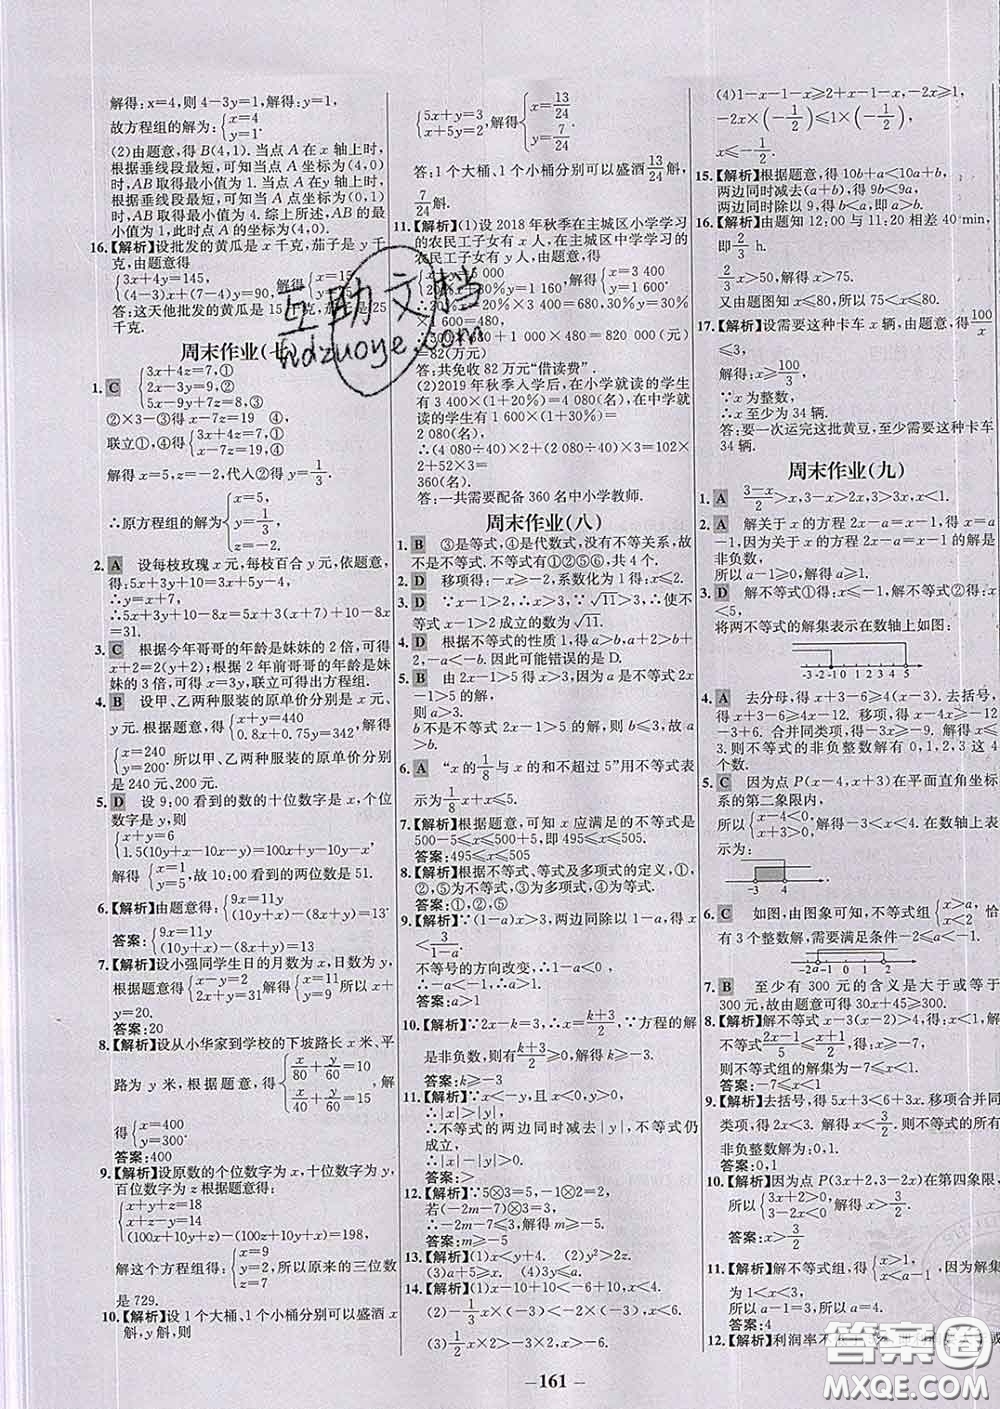 解得:x=4,则 4-3y=1,解得:y=1.
故方程组的解为:{x=4 y=1.
(2)由题意,得 B(4,1). 当点 A 在 x 轴上时,
根据垂线段最短,可知当点 A 坐标为(4,0)
时,AB 取得最小值为 1. 当点 A 在 y 轴上
时,根据垂线段最短,可知当点 A 坐标为(0,1)
时,AB 取得最小值为 4. 综上所述,AB 的最小值为1,此时点 A 的坐标为(4,0).
16.【解析】设批发的黄瓜是 x 千克,茄子是 y 千
克,由题意得
{3x+4y=145, (4-3)x+(7-4)y=90, 解得{x=15,
答:这天他批发的黄瓜是 15 千克,茄子是 25
千克.
周末作业(七)
1. C {3x+4z=7,① 2x-3y=9,② 5x-9y+7z=8,③
②×3-③得 x-7z=19 ④,
联立①,④得{3x+4z=7, x-7z=19,
解得 x=5,z=-2,代入②得 y=1/3.
∴原方程组的解为{x=5, y=1/3, z=-2.
2. A 设每枝玫瑰 x 元,每枝百合 y 元,依题意
得:5x+3y+10=3x+5y-4,
∴y=x+7,
∴5x+3y+10-8x=5x+3(x+7)+10-8x=
31.
3. C 根据今年哥哥的年龄是妹妹的 2 倍,可得
x+2=2(y+2);根据 2 年前哥哥的年龄是妹
妹的 3 倍,可得 x=3y,联立可得出方程组.
4. B 设甲、乙两种服装的原单价分别是 x 元、
y元. 根据题意,得{x+y=440 0.8x+0.75y=342 解得
{x=240 y=200. 所以甲、乙两种服装的原单价分别
是 240 元、200 元.
5. D 设 9:00 看到的数的十位数字是 x,个位
数字是 y,则
{x+y=6 1.5(10y+x-10x-y)=100x+y-10y-x
解得 {x=1 y=5, 故 10:00 看到的两位数是 51.
6.【解析】由题意得:{9x=11y (10y+x)-(8x+y)=13.
答案:{9x=11y (10y+x)-(8x+y)=13
7.【解析】设小强同学生日的月数为 x,日数为 y,
根据题意,得{x-y=2 2x+y=31 解得{x=11 y=9. 所以 x+
y=20.
答案:20
8.【解析】设从小华家到学校的下坡路长 x 米、平
路为 y 米,根据题意,得{x/80+y/60=10 x/40+y/60=15, 解
得{x=400 y=300.
答案:400
9.【解析】设原数的个位数字为 x,十位数字为 y,
百位数字为 z 根据题意得:
{x+y+z=18 x+y-z=14 (100x+10y+z)-(100z+10y+x)=198,
解这个方程组得:{x=9 y=7 z=2. 所以原来的三位数
是 729.
10.【解析】设 1 个大桶、1 个小桶分别可以盛酒 x
斛,y斛,则
{5x+y=3 x+5y=2, 解得{x=13/24 y=7/24.
答:1 个大桶、1 个小桶分别可以盛酒 13/24 斛、
7/24 斛.
11.【解析】(1)设 2018 年秋季在主城区小学学习
的农民工子女有 x 人,在主城区中学学习的
农民工子女有 y 人,由题意,得
解得{x=3 400 y=1 600.
=82(万元)
答:共免收 82 万元“借读费”.
(2)2019 年秋季入学后,在小学就读的学生
有 3 400×(1+20%)=4 080(名),在中学就
读的学生有 1 600×(1+30%)=
2 080(名),
∴(4 080÷40)×2+(2 080÷40)×3=102×2
+52×3=360(名).
答:一共需要配备 360 名中小学教师.
周末作业(八)
1. B ③是等式,④是代数式,没有不等关系,故
不是不等式. 不等式有①②⑤⑥,共 4 个.
2. D 移项得:-x≥-2,系数化为 1 得:x≤2.
3. D ∵x-1>2,∴x>3,∵√11>3,∴使不等
式 x-1>2 成立的数为√11.
4. D 根据不等式的性质 1,得>b,a+2>b+
2,-5a<-5b. 因此可能错误的是 D.
5. B 由 2x-1>5 得 x>3;因为 a 是不等式 2x
-1>5 的解,
则 a>3.
b 不是不等式 2x-1>5 的解,则 b≤3,故 a
>b.
6. A “x 的 1/8 与 x 的和不超过 5”用不等式表
示为 1/8x+x≤5.
7.【解析】根据题意,可知 x 应满足的不等式是
500-5≤x≤500+5,即 495≤x≤505.
答案:495≤x≤505
8.【解析】根据不等式、等式及多项式的定义,①,
②,⑤为不等式;③为多项式;④为等式.
答案:①,②,⑤
9.【解析】∵(1-a)x>3,两边同除以 1-a,得 x
<3/(1-a)
不等号的方向改变,∴1-a<0 ,
∴-a<-1,∴a>1.
答案:a>1
10.【解析】∵2x-k=3,∴x=(k+3)/2,∵方程的解
是非负数,则有(k+3)/2≥0,∴k≥-3.
答案:k≥-3
11.【解析】∵x<-y,且 x>0,
∴|x|>|y|,
∴不等式的两边同时减去|y|,不等式仍
成立,
∴|x|-|y|>0.
答案:>
12.【解析】∵5⊗3=5,-1⊗2=2,
若(-2m-7)⊗3=3,
∴-2m-7≤3,解得 m≥-5.
答案:m≥-5
13.【解析】(1)x<y+4. (2)y²>2z.
(3)a+5≥3. (4)7a≤-1.
14.【解析】(1)x-10+10<-6+10,x<4.
(3)1/2x×2>-3×2,x>-6.
(4)1-x-1-x≥2+x-1-x,-2x≥1,
-2x×(-1/2)≤1×(-1/2),
x≤-1/2.
15.【解析】根据题意,得 10b+a<10a+b,
两边同时减去(a+b),得 9b<9a,
两边同时除以 9,得 b<a,即 a>b.
16.【解析】由题知 12:00 与 11:20 相差 40 min,
即 2/3 h.
2/3x>50,解得 x>75.
又由题图知 x≤80,所以 75<x≤80.
17.【解析】设需要这种卡车 x 辆,由题意,得100/x
≤3.
解得:x≥100/3,
∵x 为整数,
∴x 至少为 34 辆.
答:要一次运完这批黄豆,至少需要这种卡车
34 辆.
周末作业(九)
1. A (3-x)/2>x,3-x>2x,3>3x,x<1.
2. A 解关于 x 的方程 2x-a=x-1,得 x=a
-1,因为关于 x 的方程 2x-a=x-1 的解是
非负数,
所以 a-1≥0,解得 a≥1.
3. D 解不等式①得:x≤-1,解不等式②得:x
<5,
将两不等式的解集表示在数轴上如图:
-3-2-1 0 1 2 3 4 5
4. A 去分母,得 x+3-6≥4(x-3). 去括号,
得 x+3-6≥4x-12. 移项,得 x-4x≥-12
-3+6. 合并同类项,得-3x≥-9. 解得 x≤
3.则不等式的非负整数解有 0,1,2,3 这 4
个数.
5. C 因为点 P(x-4,x+3)在平面直角坐标
系的第二象限内,
所以{x-4<0 x+3>0, 解得:-3<x<4. 在数轴上表
示为:
-3 4
6. C 如图,由图象可知,不等式组{x>a, x<2 恰
有 3 个整数解,需要满足条件-2≤a<-1.
-2a-1 0 1 2
7. B 至少有 300 元的含义是大于或等于
300 元,故由题意可得 30x+45≥300.
8.【解析】解不等式 x-3(x-2)>4,得:x<1,解
不等式(2x-1)/5≤(x+1)/2,得:x≥-7,
则不等式组的解集为-7≤x<1.
答案:-7≤x<1
9.【解析】去括号,得 5x+3<6+3x. 移项合并同
类项,得 2x<3. 解得 x<3/2. 所以不等式的
非负整数解为:0,1.
答案:0,1
10.【解析】因为点 P(3x+2,3-2x)在第四象限,
所以{3x+2>0, 3-2x<0, 解得:x>3/2.
答案:x>3/2
11.【解析】解不等式组,得{x>1, x<a-1, 因为解集
为 1<x<3,
所以 a-1=3. 所以 a=4.
答案:4
12.【解析】利润率不
- 161 -
互助文档
hdzuoye.com
答案圈
MXQE.COM